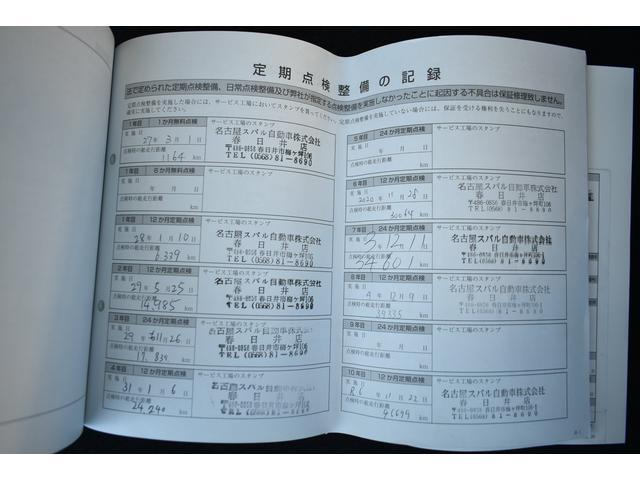 定期点検整備の記録
法で定められた定期点検整備、日常点検整備及び弊社が指定する点検整備を実施しなかったことに起因する不具合は保証修理致しません。
定期点検整備を実施した場合には、サービス工場においてスタンプを貰ってください。定期点検整備を実施していない場合には、保証を受ける権利を失うことにもなりますので、
確実に実施してください。
1年目 1か月無料点検 サービス工場のスタンプ
実施日
27年3月1日
点検時の総走行距離
1164 km
名古屋スバル自動車株式会社
春日井店
〒486-0858 春日井市梅ヶ坪町106
TEL(0568)81-8690
1年目 6か月無料点検 サービス工場のスタンプ
実施日
年 月 日
点検時の総走行距離
km
1年目 12か月定期点検 サービス工場のスタンプ
実施日
28年1月10日
点検時の総走行距離
6339 km
名古屋スバル自動車株式会社
春日井店
〒486-0858 春日井市梅ヶ坪町106
TEL(0568)81-8690
2年目 12か月定期点検 サービス工場のスタンプ
実施日
29年5月25日
点検時の総走行距離
14985 km
名古屋スバル自動車株式会社
春日井店
〒486-0858 春日井市梅ヶ坪町106
TEL(0568)81-8690
3年目 24か月定期点検 サービス工場のスタンプ
実施日
29年11月26日
点検時の総走行距離
17,839 km
名古屋スバル自動車株式会社
春日井店
TEL(0568)81-8690
4年目 12か月定期点検 サービス工場のスタンプ
実施日
31年1月6日
点検時の総走行距離
24,290 km
名古屋スバル自動車株式会社
春日井店
5年目 24か月定期点検 サービス工場のスタンプ
実施日
年 月 日
点検時の総走行距離
km
6年目 12か月定期点検 サービス工場のスタンプ
実施日
2020年11月28日
点検時の総走行距離
30064 km
名古屋スバル自動車株式会社
春日井店
〒486-0858 春日井市梅ヶ坪町106
TEL(0568)81-8690
7年目 24か月定期点検 サービス工場のスタンプ
実施日
3年12月11日
点検時の総走行距離
34601 km
名古屋スバル自動車株式会社
春日井店
〒486-0858 春日井市梅ヶ坪町106
TEL(0568)81-8690
8年目 12か月定期点検 サービス工場のスタンプ
実施日
点検時の総走行距離
39335 km
名古屋スバル自動車株式会社
春日井店
〒486-0858 春日井市梅ヶ坪町106
TEL(0568)81-8690
9年目 24か月定期点検 サービス工場のスタンプ
実施日
年 月 日
点検時の総走行距離
km
10年目 12か月定期点検 サービス工場のスタンプ
実施日
R6年11月22日
点検時の総走行距離
46699 km
名古屋スバル自動車株式会社
春日井店
〒486-0858 春日井市梅ヶ坪町106
TEL(0568)81-8690